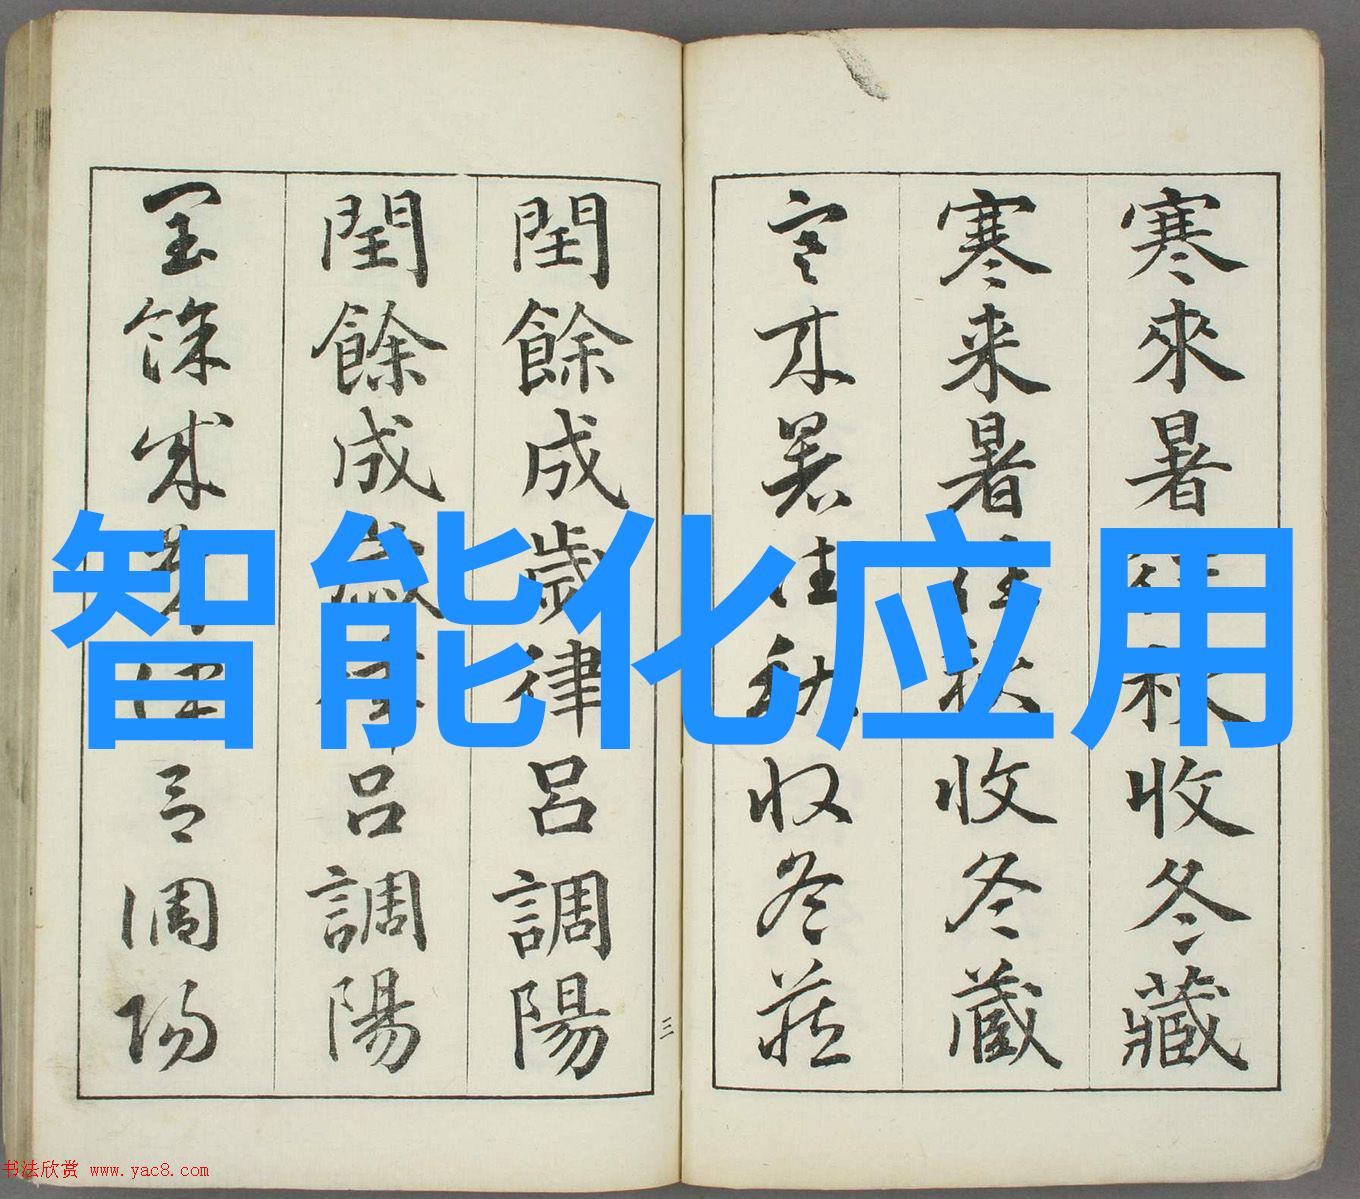 寒來暑往秋收冬藏
寒来暑往秋收冬蔵
寒来暑往秋收冬藏
三
閏餘成歲律呂調陽
閏餘成歲律呂調陽
閏餘成歲律呂調陽
智能化应用
书法欣赏 www.yac8.com